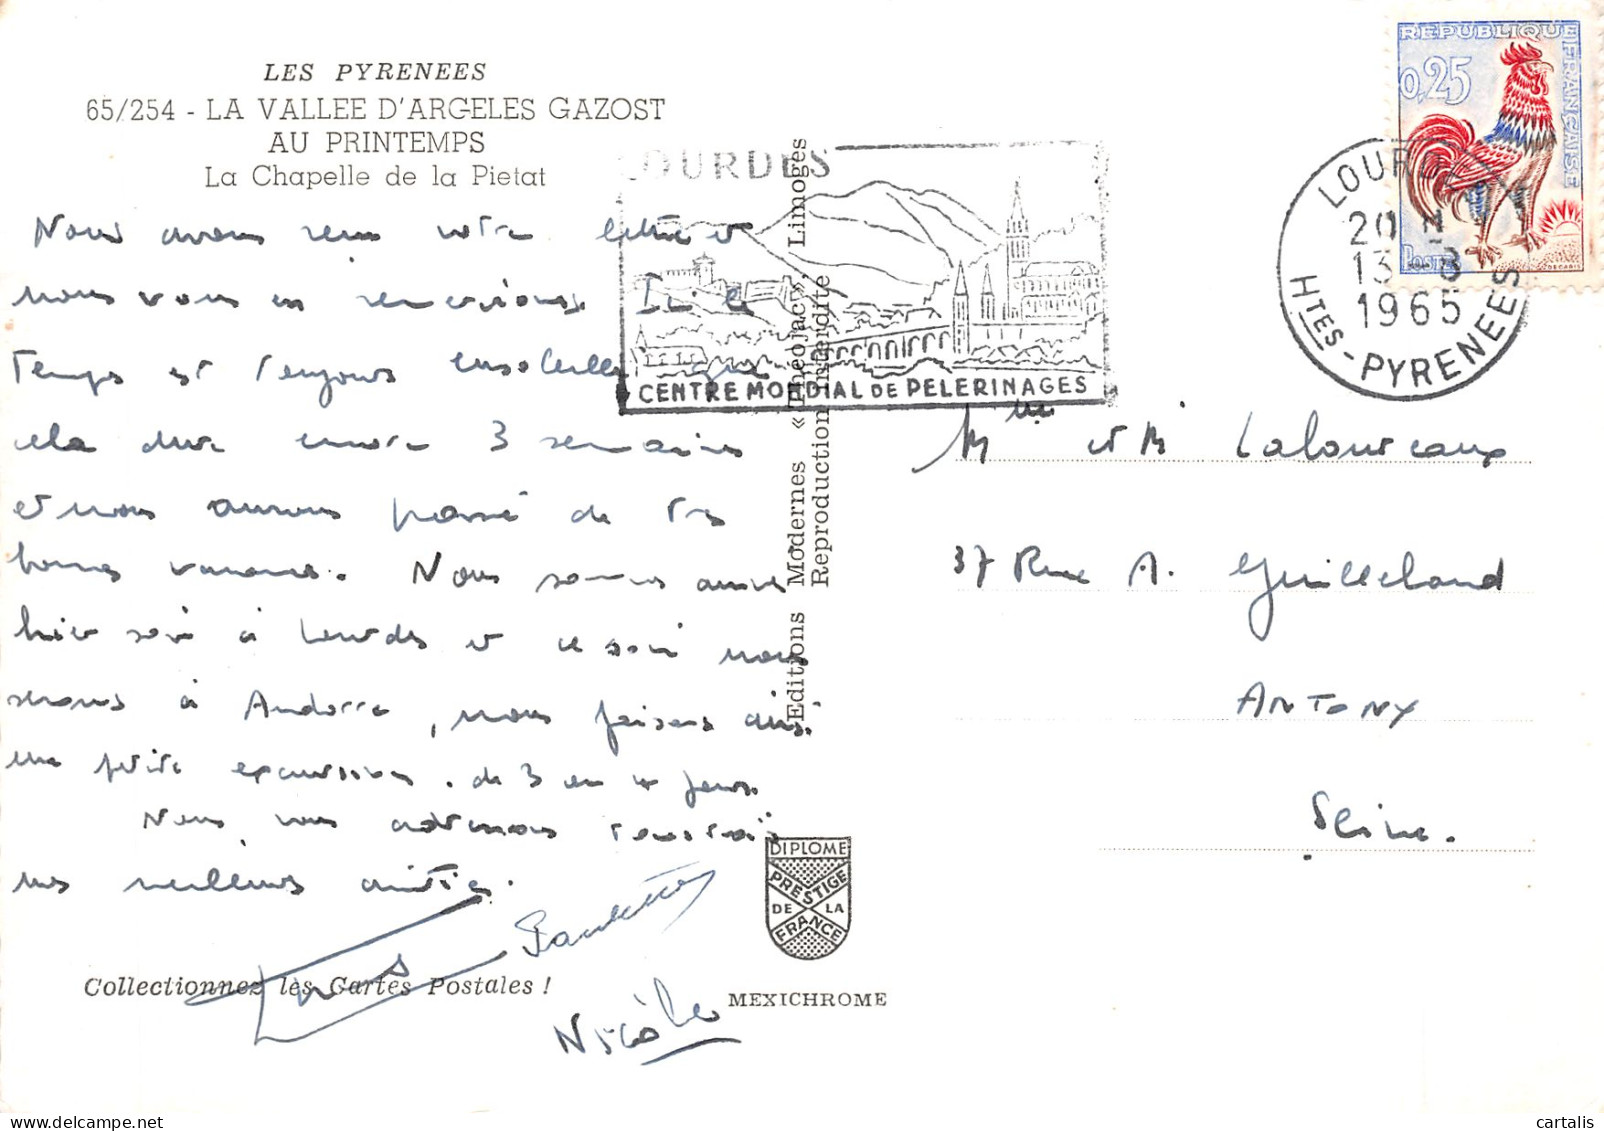 LES PYRENEES
65/254 - LA VALLEE D'ARGELES GAZOST
AU PRINTEMPS
La Chapelle de la Pietat
Nous avons reçu votre lettre et
nous vous en remercions. Ici le
temps est toujours ensoleillé que
cela dure encore 3 semaines
et nous aurons passé de très
bonnes vacances. Nous sommes arrivés
hier soir à Lourdes et ce soir nous
serons à Andorre, nous faisons ainsi
une petite excursion de 3 ou 4 jours.
Nous vous adressons tous trois
nos meilleures amitiés.
Paulette
Nicole
Collectionnez les Cartes Postales !
Editions Modernes « Théojac », Limoges
Reproduction Interdite
LOURDES
CENTRE MONDIAL DE PELERINAGES
REPUBLIQUE FRANÇAISE
0,25
POSTES
DECARIS
LOURDES
20 H
13-8
1965
HTES-PYRENEES
Mme et M Laloureaux
37 Rue A. Guillebaud
ANTONY
Seine.
DIPLOME
PRESTIGE
DE LA
FRANCE
MEXICHROME
cartalis.com